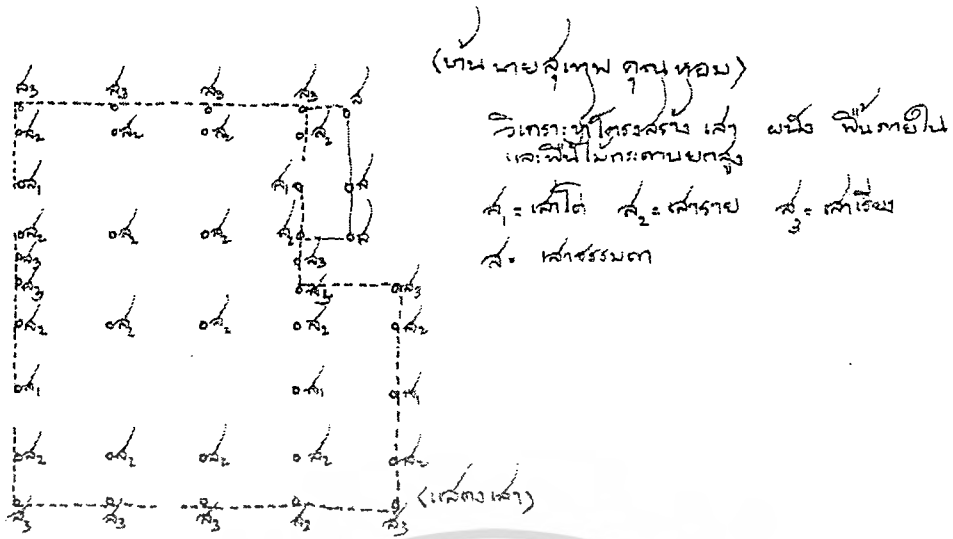 (บ้านนายสุเทพ คุณหอม)
วิเคราะห์โครงสร้าง เสา ผนัง พื้นภายใน
และพื้นไม้กระดานยกสูง
ส₁= เสาโด่ ส₂= เสาราย ส₃= เสาเรียง
ส= เสาธรรมดา
ส₃ ส₃ ส₃ ส₃ ส
ส₂ ส₂ ส₂ ส₂
ส₁ ส₁ ส
ส₂ ส₂ ส₂ ส₂ ส
ส₃ ส₃
ส₃ ส₃ ส₃
ส₂ ส₂ ส₂ ส₂ ส₂
ส₁ ส₁ ส₁
ส₂ ส₂ ส₂ ส₂ ส₂
ส₃ ส₃ ส₃ ส₂ ส₃
(แสดงเสา)